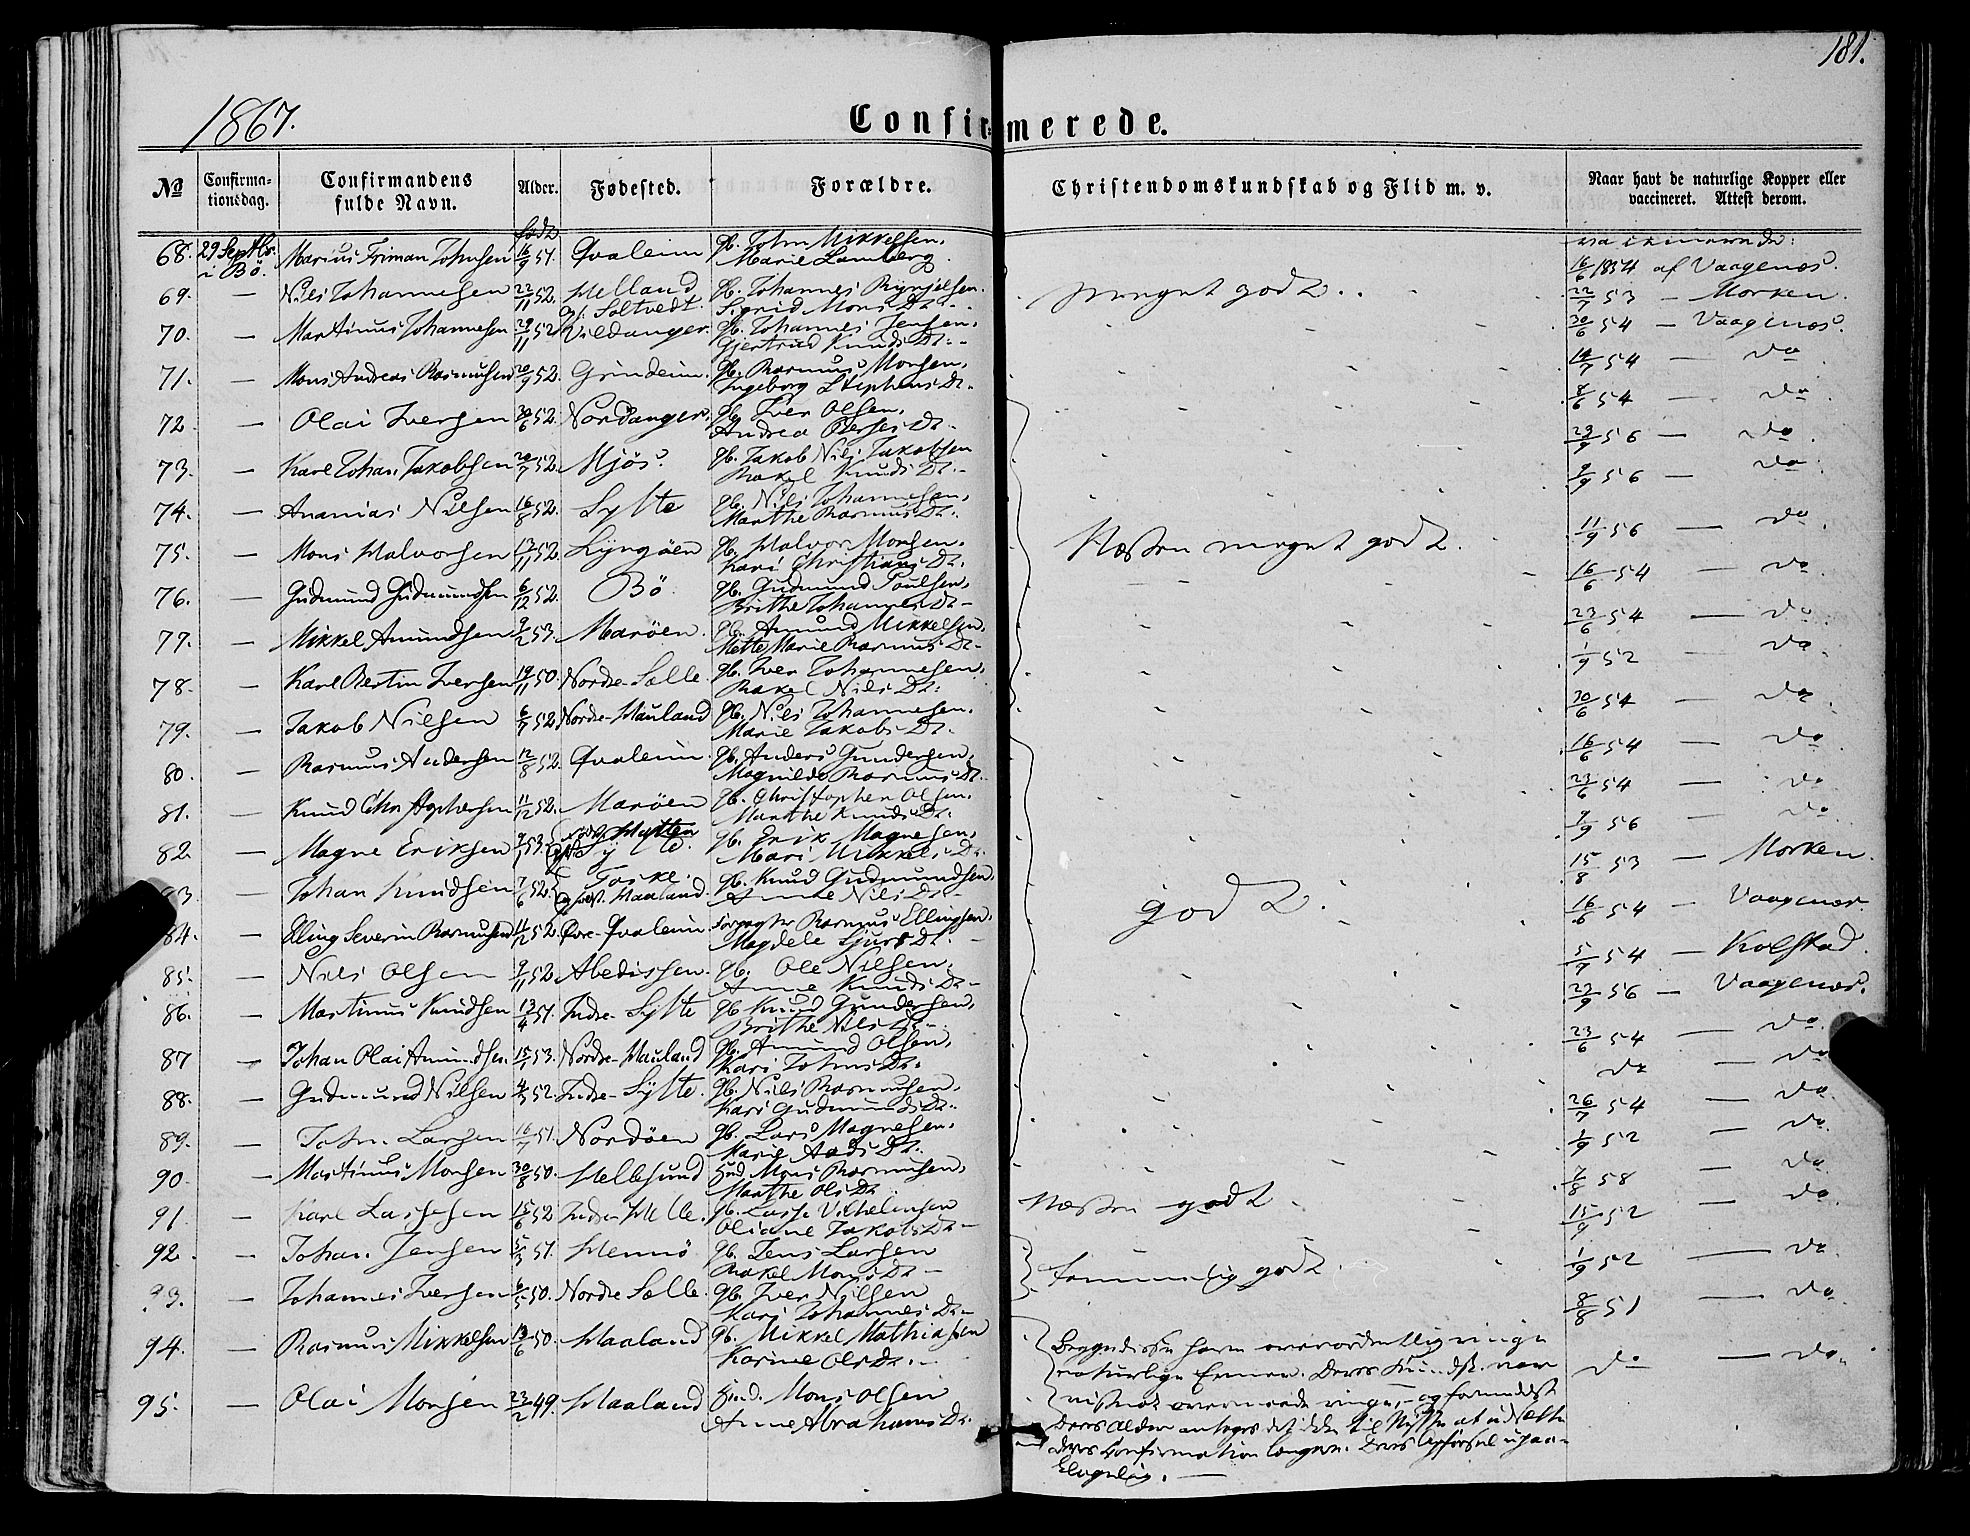 181.
1867.
Confirmerede.
No Confirmationsdag. Confirmandens fulde Navn. Alder. Fødested. Forældre. Christendomskundskab og Flid m. v. Naar havt de naturlige Kopper eller vaccineret. Attest derom.
født
68. 29 Septbr. i Bö. Marius Friman Johnsen 16/9 51. Qvaleim Gb. John Mikkelsen, Marie Lamberg. meget godt. 16/6 1854 af Vaagenæs.
69. — Nils Johannesen 22/11 52. Helland Gb. Johannes Brynjelsen, Sigrid Mons Dr. 22/7 53 — Morken.
70. — Martinus Johannesen 29/11 52 Vildanger. Gb. Johannes Jensen, Gjertrud Knuds Dr. 30/6 54 — Vaagenæs.
71. — Mons Andreas Rasmussen 20/9 52. Grindeim. Gb. Rasmus Monsen, Ingeborg Stephens Dr. 14/7 54 — do
72. — Olai Iversen 30/6 52. Nordanger. Gb. Iver Olsen, Andrea Peders Dr. 8/6 54 — do.
73. — Karl Johan Jakobsen 20/7 52. Mjös. Gb. Jakob Nils Jakobsen Rakel Knuds Dr. 29/9 56 — do
74. — Ananias Nilsen 16/8 52. Sylte Gb. Nils Johannesen, Marthe Rasmus Dr. 9/9 56 — do
75. — Mons Halvorsen 13/11 52. Lyngöen Gb. Halvor Monsen, Kari Christians Dr. Næsten meget godt. 11/9 56 — do
76. — Gudmund Gudmundsen 6/12 52. Bö. Gb. Gudmund Poulsen, Brithe Johannes Dr. 16/6 54 — do
77. — Mikkel Amundsen 9/2 53. Maröen. Gb. Amund Mikkelsen, Mette Marie Rasmus Dr. 23/6 54 — do
78. — Karl Bertin Iversen 19/11 50. Nordre-Sælle. Gb. Iver Johannesen, Rakel Nils Dr. 1/9 52 — do
79. — Jakob Nilsen 6/7 52 Nordre-Hauland Gb. Nils Johannesen. Marie Jakobs Dr. 30/6 54 — do
80. — Rasmus Andersen 12/8 52. Qvaleim. Gb. Anders Gundersen, Magnilde Rasmus Dr. 16/6 54 — do
81. — Knud Christophersen 11/12 52. Maröen Gb. Christopher Olsen, Marthe Knuds Dr. 23/6 54 — do
82. — Magne Eriksen 9/1 53. Sylte. Gb. Erik Magnesen, Mari Mikkels Dr. 9/9 56 — do
83 — Johan Knudsen 7/6 52. Toske. Maaland Gb. Knud Gudmundsen, Anne Nils Dr. godt. 15/8 53 — Morken.
84. — Elling Severin Rasmussen 11/12 52. Övre-Qvaleim Forpagter Rasmus Ellingsen, Magdele Sjurs Dr. 16/6 54 — Vaagenæs.
85. — Nils Olsen 9/11 52. Abedissen. Gb. Ole Nilsen, Anne Knuds Dr. 5/7 54 — Kolstad.
86. — Martinus Knudsen 13/4 51. Indre-Sylte Gb. Knud Gundersen, Brithe Nils Dr. 29/9 56 — Vaagenæs.
87 — Johan Olai Amundsen. 15/1 53. Nordre-Hauland Gb. Amund Olsen, Kari Johns Dr. 23/6 54 — do
88. — Gudmund Nilsen 52. Indre-Sylte. Gb. Nils Rasmussen. Kari Gudmunds Dr. do — do
89. — John Larsen 16/7 51. Nordöen Gb. Lars Magnesen, 26/7 54 — do
90. — Martinus Monsen 30/8 50. Hellesund Hmd. Mons Rasmussen, Marthe Ols Dr. 1/9 52 — do
91. — Karl Lassesen 15/6 52 Indre-Helle. Gb. Lasse Vilhelmsen Oliane Jakobs Dr. Næsten godt. 7/8 58 — do
92 — Johan Jensen 5/3 51. Hennö Gb. Jens Larsen Rakel Mons Dr. temmelig godt. 15/9 52 — do
93. — Johannes Iversen 6/5 50. Nordre Sælle. Gb. Iver Nilsen Kari Johannes Dr. 1/9 52 — do
94. — Rasmus Mikkelsen 13/6 50. Maaland Gb. Mikkel Mathiasen Karine Ols Dr. 8/8 51 — do
95. — Olai Monsen 23/2 49. Maaland Hmd. Mons Olsen Anne Abrahams Dr. do — do
Begge disse have overordentlig ringe
naturlige Evner. Deres Kundsk. var
vistnok overmaade ringe, — og formedelst
deres Alder antoges det ikke til Nytte at udsætte
deres Confirmation længer. Deres Opførsel upaa-
klagelig. —